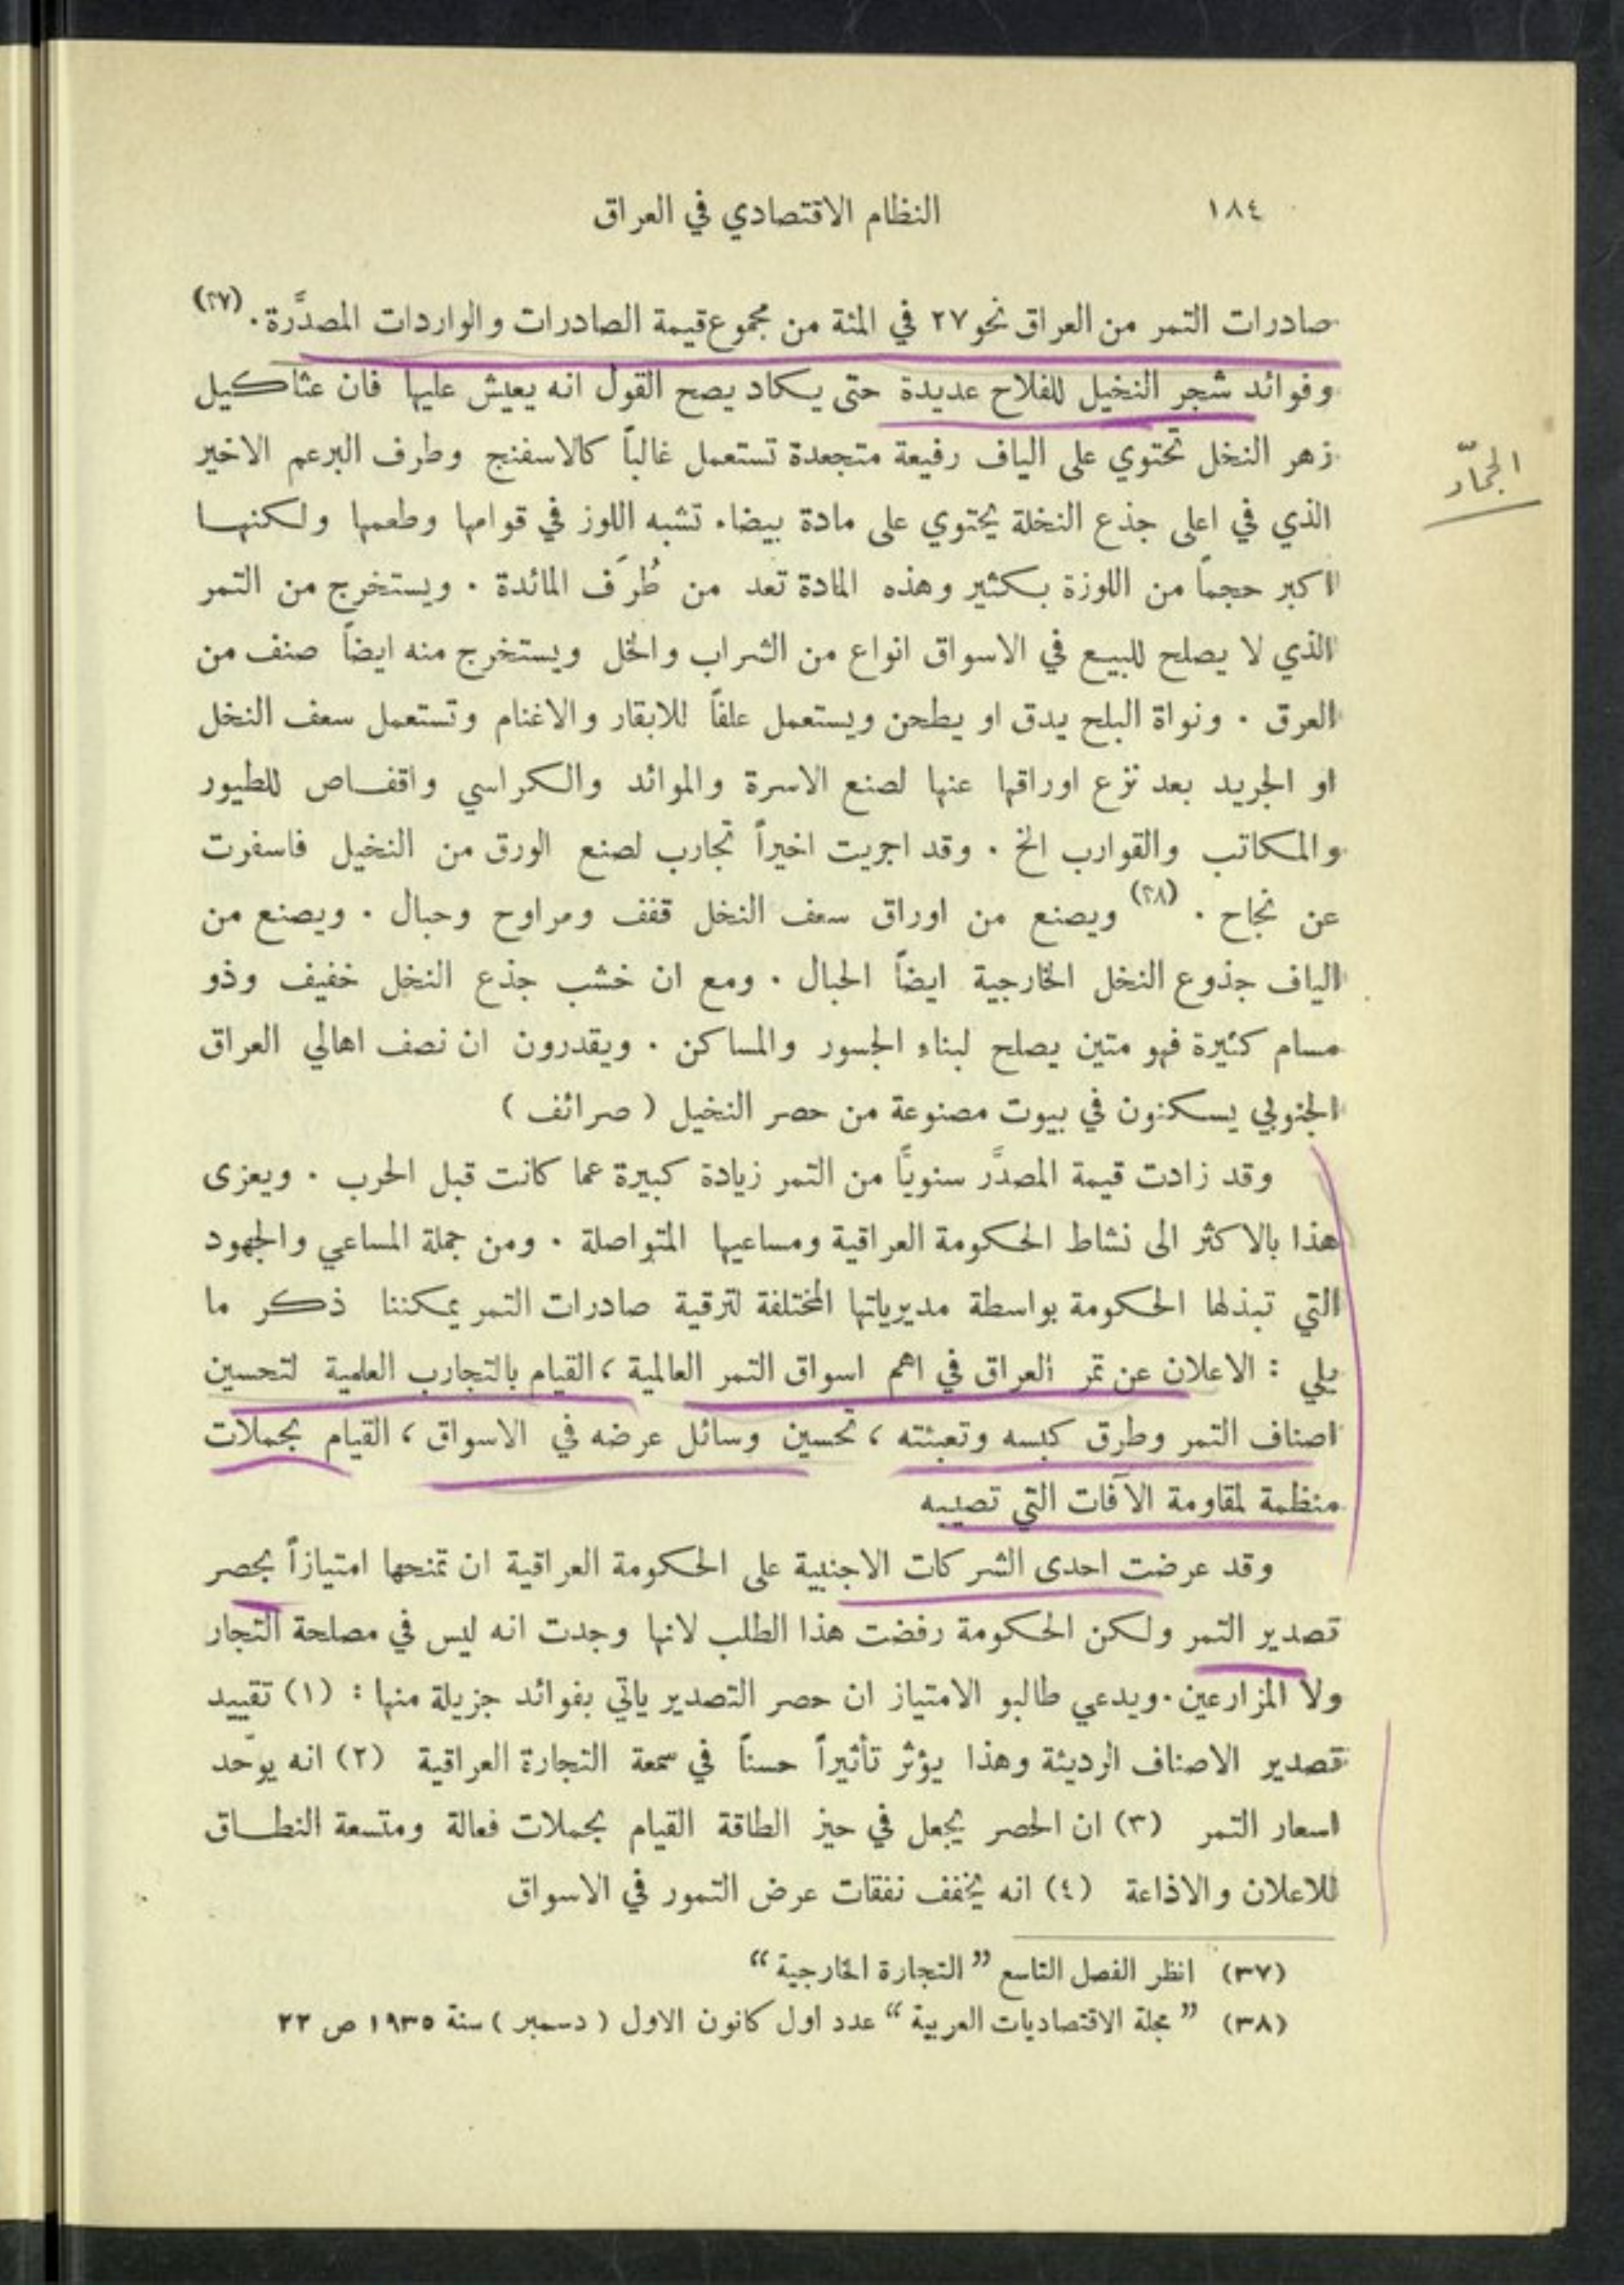 ١٨٤
النظام الاقتصادي في العراق
صادرات التمر من العراق نحو ٢٧ في المئة من مجموع قيمة الصادرات والواردات المصدَّرة. (٣٧)
وفوائد شجر النخيل للفلاح عديدة حتى يكاد يصح القول انه يعيش عليها فان عثاكيل
زهر النخل تحتوي على الياف رفيعة متجعدة تستعمل غالباً كالاسفنج وطرف البرعم الاخير
الذي في اعلى جذع النخلة يحتوي على مادة بيضاء تشبه اللوز في قوامها وطعمها ولكنها
اكبر حجماً من اللوزة بكثير وهذه المادة تعد من طُرَف المائدة . ويستخرج من التمر
الذي لا يصلح للبيع في الاسواق انواع من الشراب والخل ويستخرج منه ايضاً صنف من
العرق . ونواة البلح يدق او يطحن ويستعمل علفاً للابقار والاغنام وتستعمل سعف النخل
او الجريد بعد نزع اوراقها عنها لصنع الاسرة والموائد والكراسي واقفاص للطيور
والمكاتب والقوارب الخ . وقد اجريت اخيراً تجارب لصنع الورق من النخيل فاسفرت
عن نجاح . (٣٨) ويصنع من اوراق سعف النخل قفف ومراوح وحبال . ويصنع من
الياف جذوع النخل الخارجية ايضاً الحبال . ومع ان خشب جذع النخل خفيف وذو
مسام كثيرة فهو متين يصلح لبناء الجسور والمساكن . ويقدرون ان نصف اهالي العراق
الجنوبي يسكنون في بيوت مصنوعة من حصر النخيل ( صرائف )
وقد زادت قيمة المصدَّر سنويًا من التمر زيادة كبيرة عما كانت قبل الحرب . ويعزى
هذا بالاكثر الى نشاط الحكومة العراقية ومساعيها المتواصلة . ومن جملة المساعي والجهود
التي تبذلها الحكومة بواسطة مديرياتها المختلفة لترقية صادرات التمر يمكننا ذكر ما
يلي : الاعلان عن تمر العراق في اهم اسواق التمر العالمية ، القيام بالتجارب العلمية لتحسين
اصناف التمر وطرق كبسه وتعبئته ، تحسين وسائل عرضه في الاسواق ، القيام بحملات
منظمة لمقاومة الآفات التي تصيبه
وقد عرضت احدى الشركات الاجنبية على الحكومة العراقية ان تمنحها امتيازاً بحصر
تصدير التمر ولكن الحكومة رفضت هذا الطلب لانها وجدت انه ليس في مصلحة التجار
ولا المزارعين . ويدعي طالبو الامتياز ان حصر التصدير ياتي بفوائد جزيلة منها : (١) تقييد
تصدير الاصناف الرديئة وهذا يؤثر تأثيراً حسناً في سمعة التجارة العراقية (٢) انه يوحّد
اسعار التمر (٣) ان الحصر يجعل في حيز الطاقة القيام بحملات فعالة ومتسعة النطاق
للاعلان والاذاعة (٤) انه يخفف نفقات عرض التمور في الاسواق
(٣٧) انظر الفصل التاسع ” التجارة الخارجية “
(٣٨) ” مجلة الاقتصاديات العربية “ عدد اول كانون الاول ( دسمبر ) سنة ١٩٣٥ ص ٢٢
الجمّار